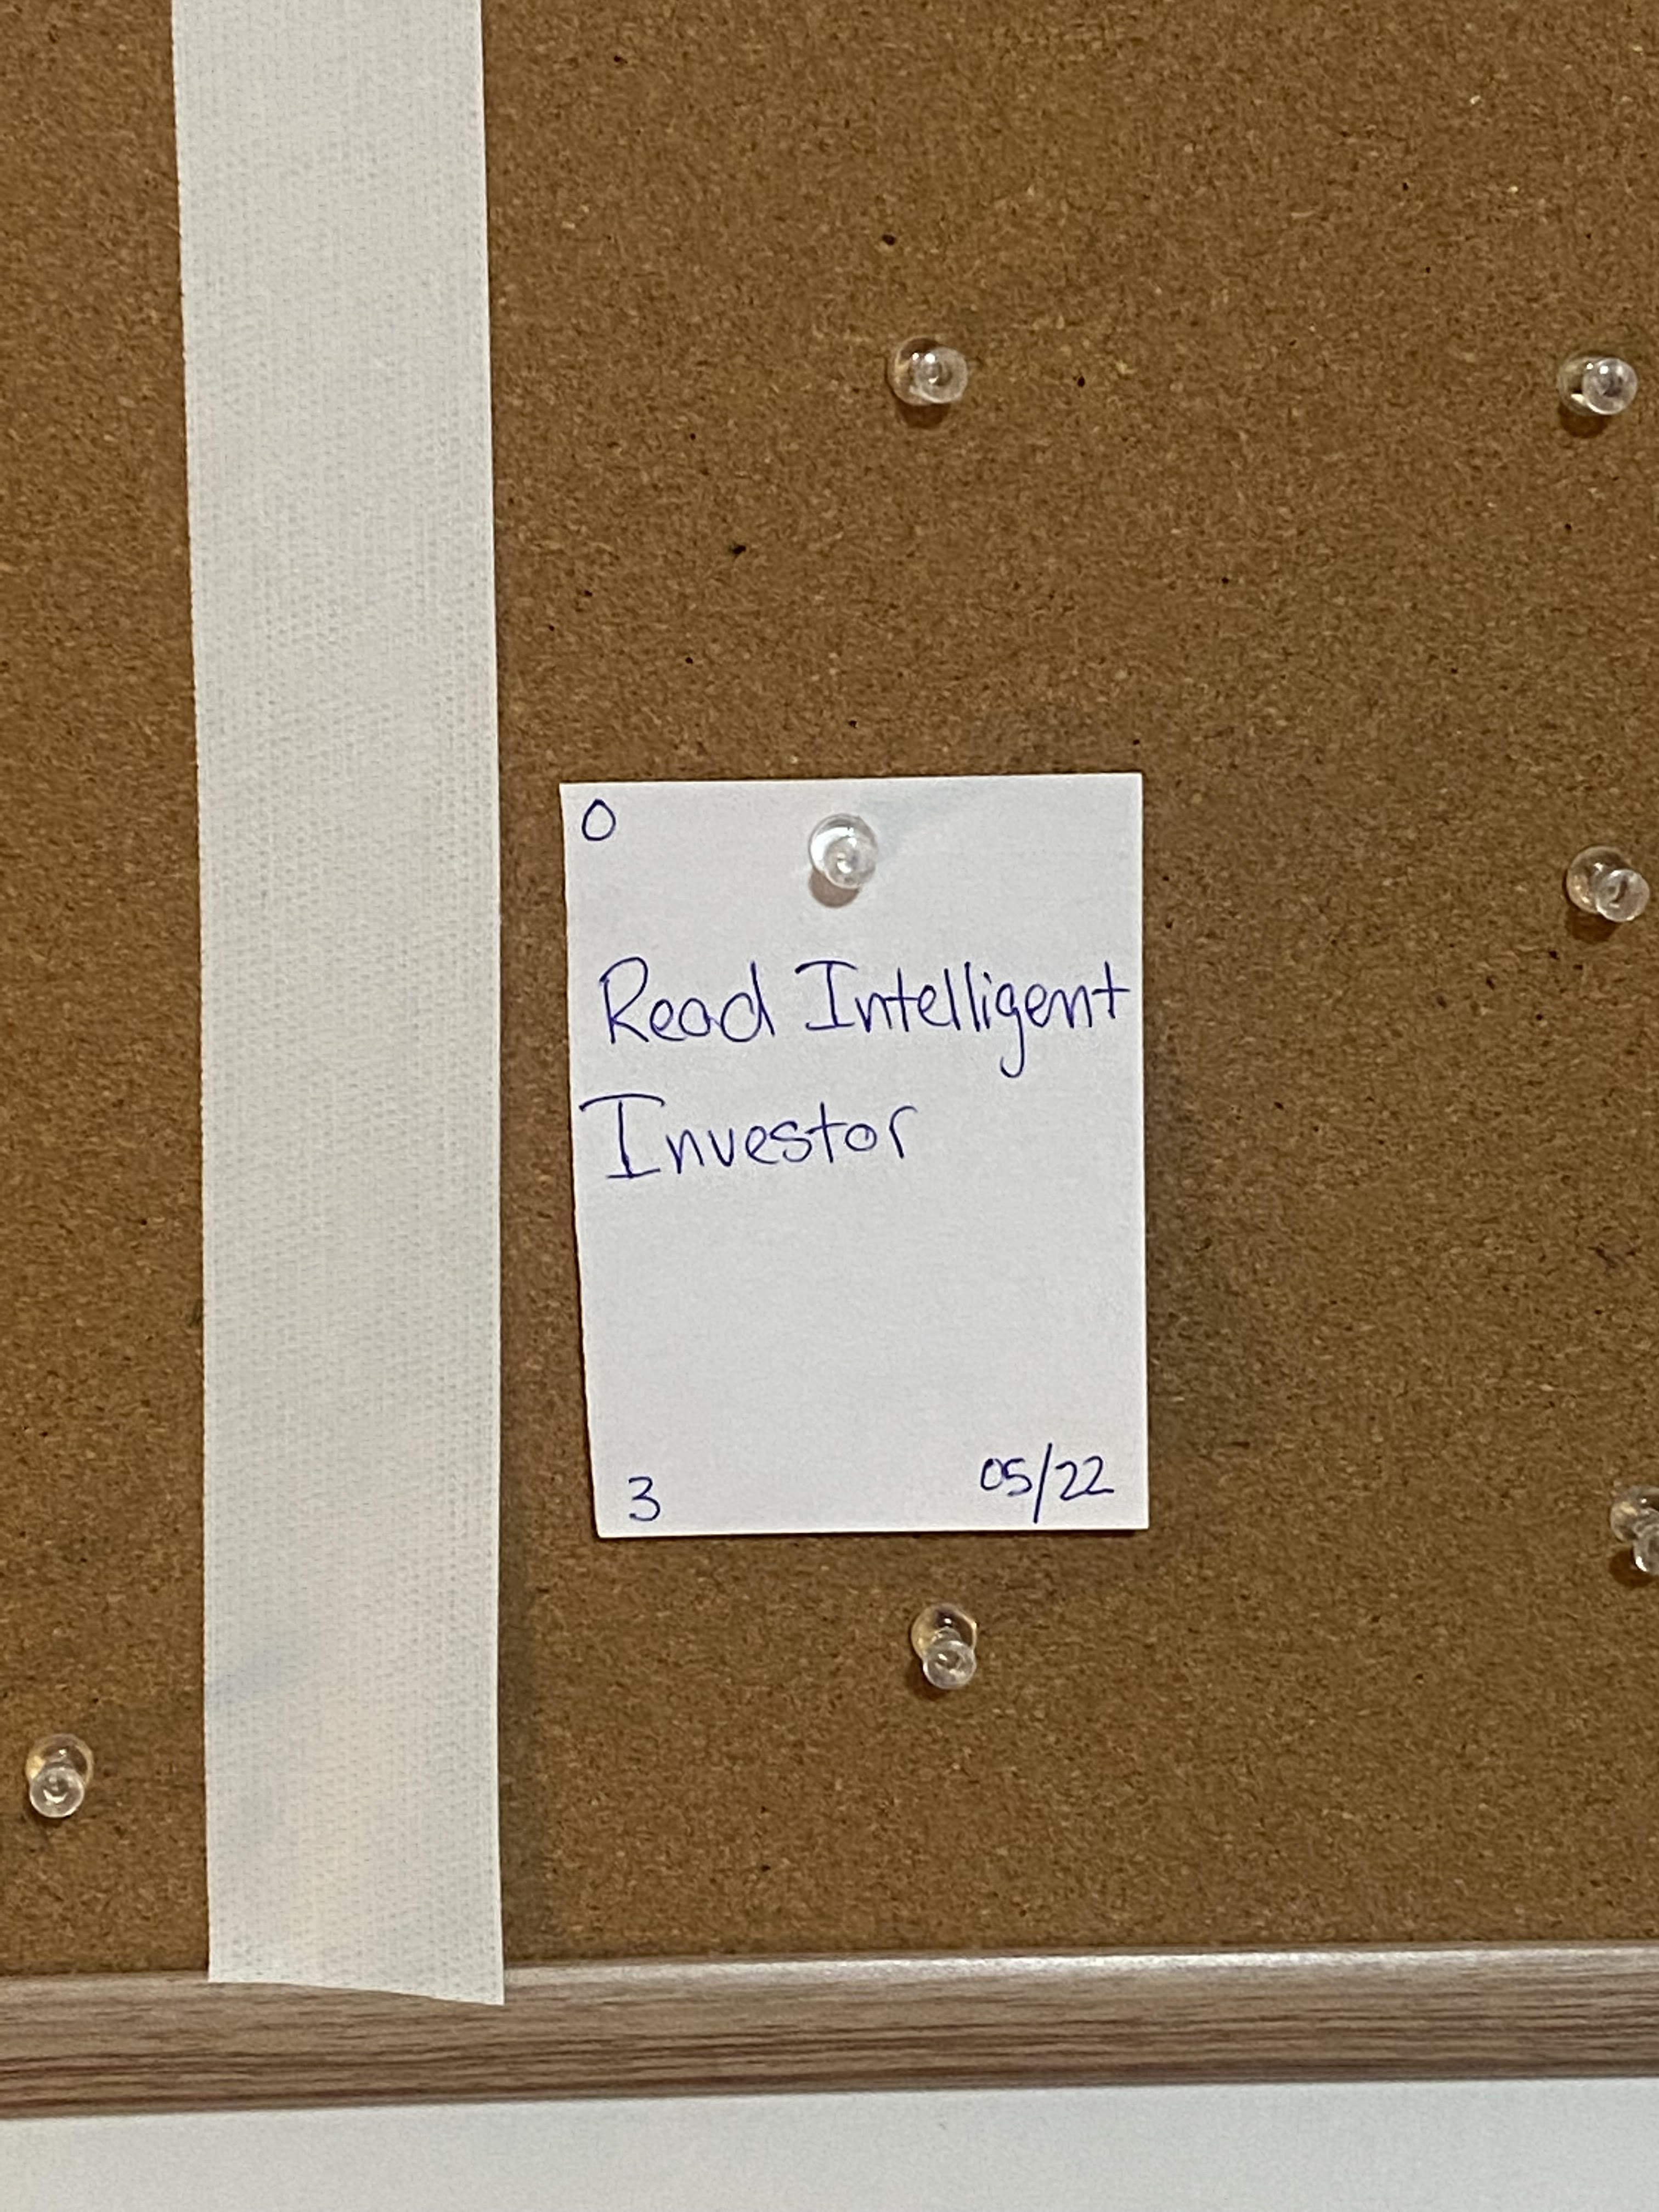 0
Read Intelligent
Investor
3 05/22